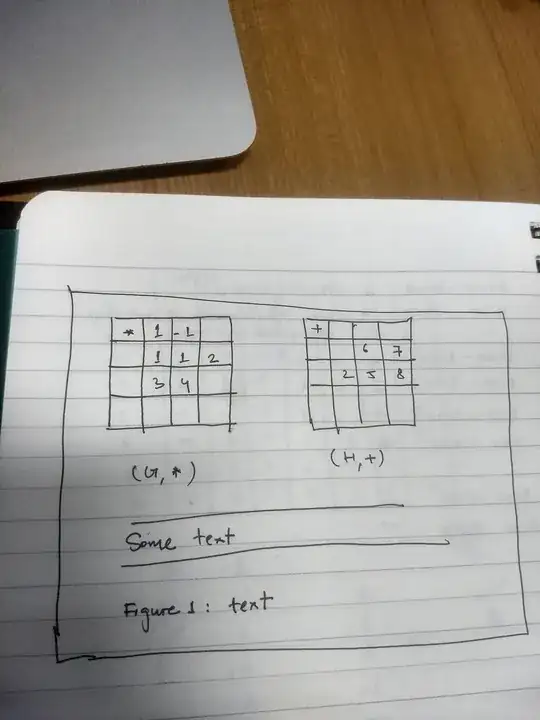 * 1 -1 +
1 1 2 6 7
3 4 2 5 8
(G, *) (H, +)
Some text
Figure 1: text